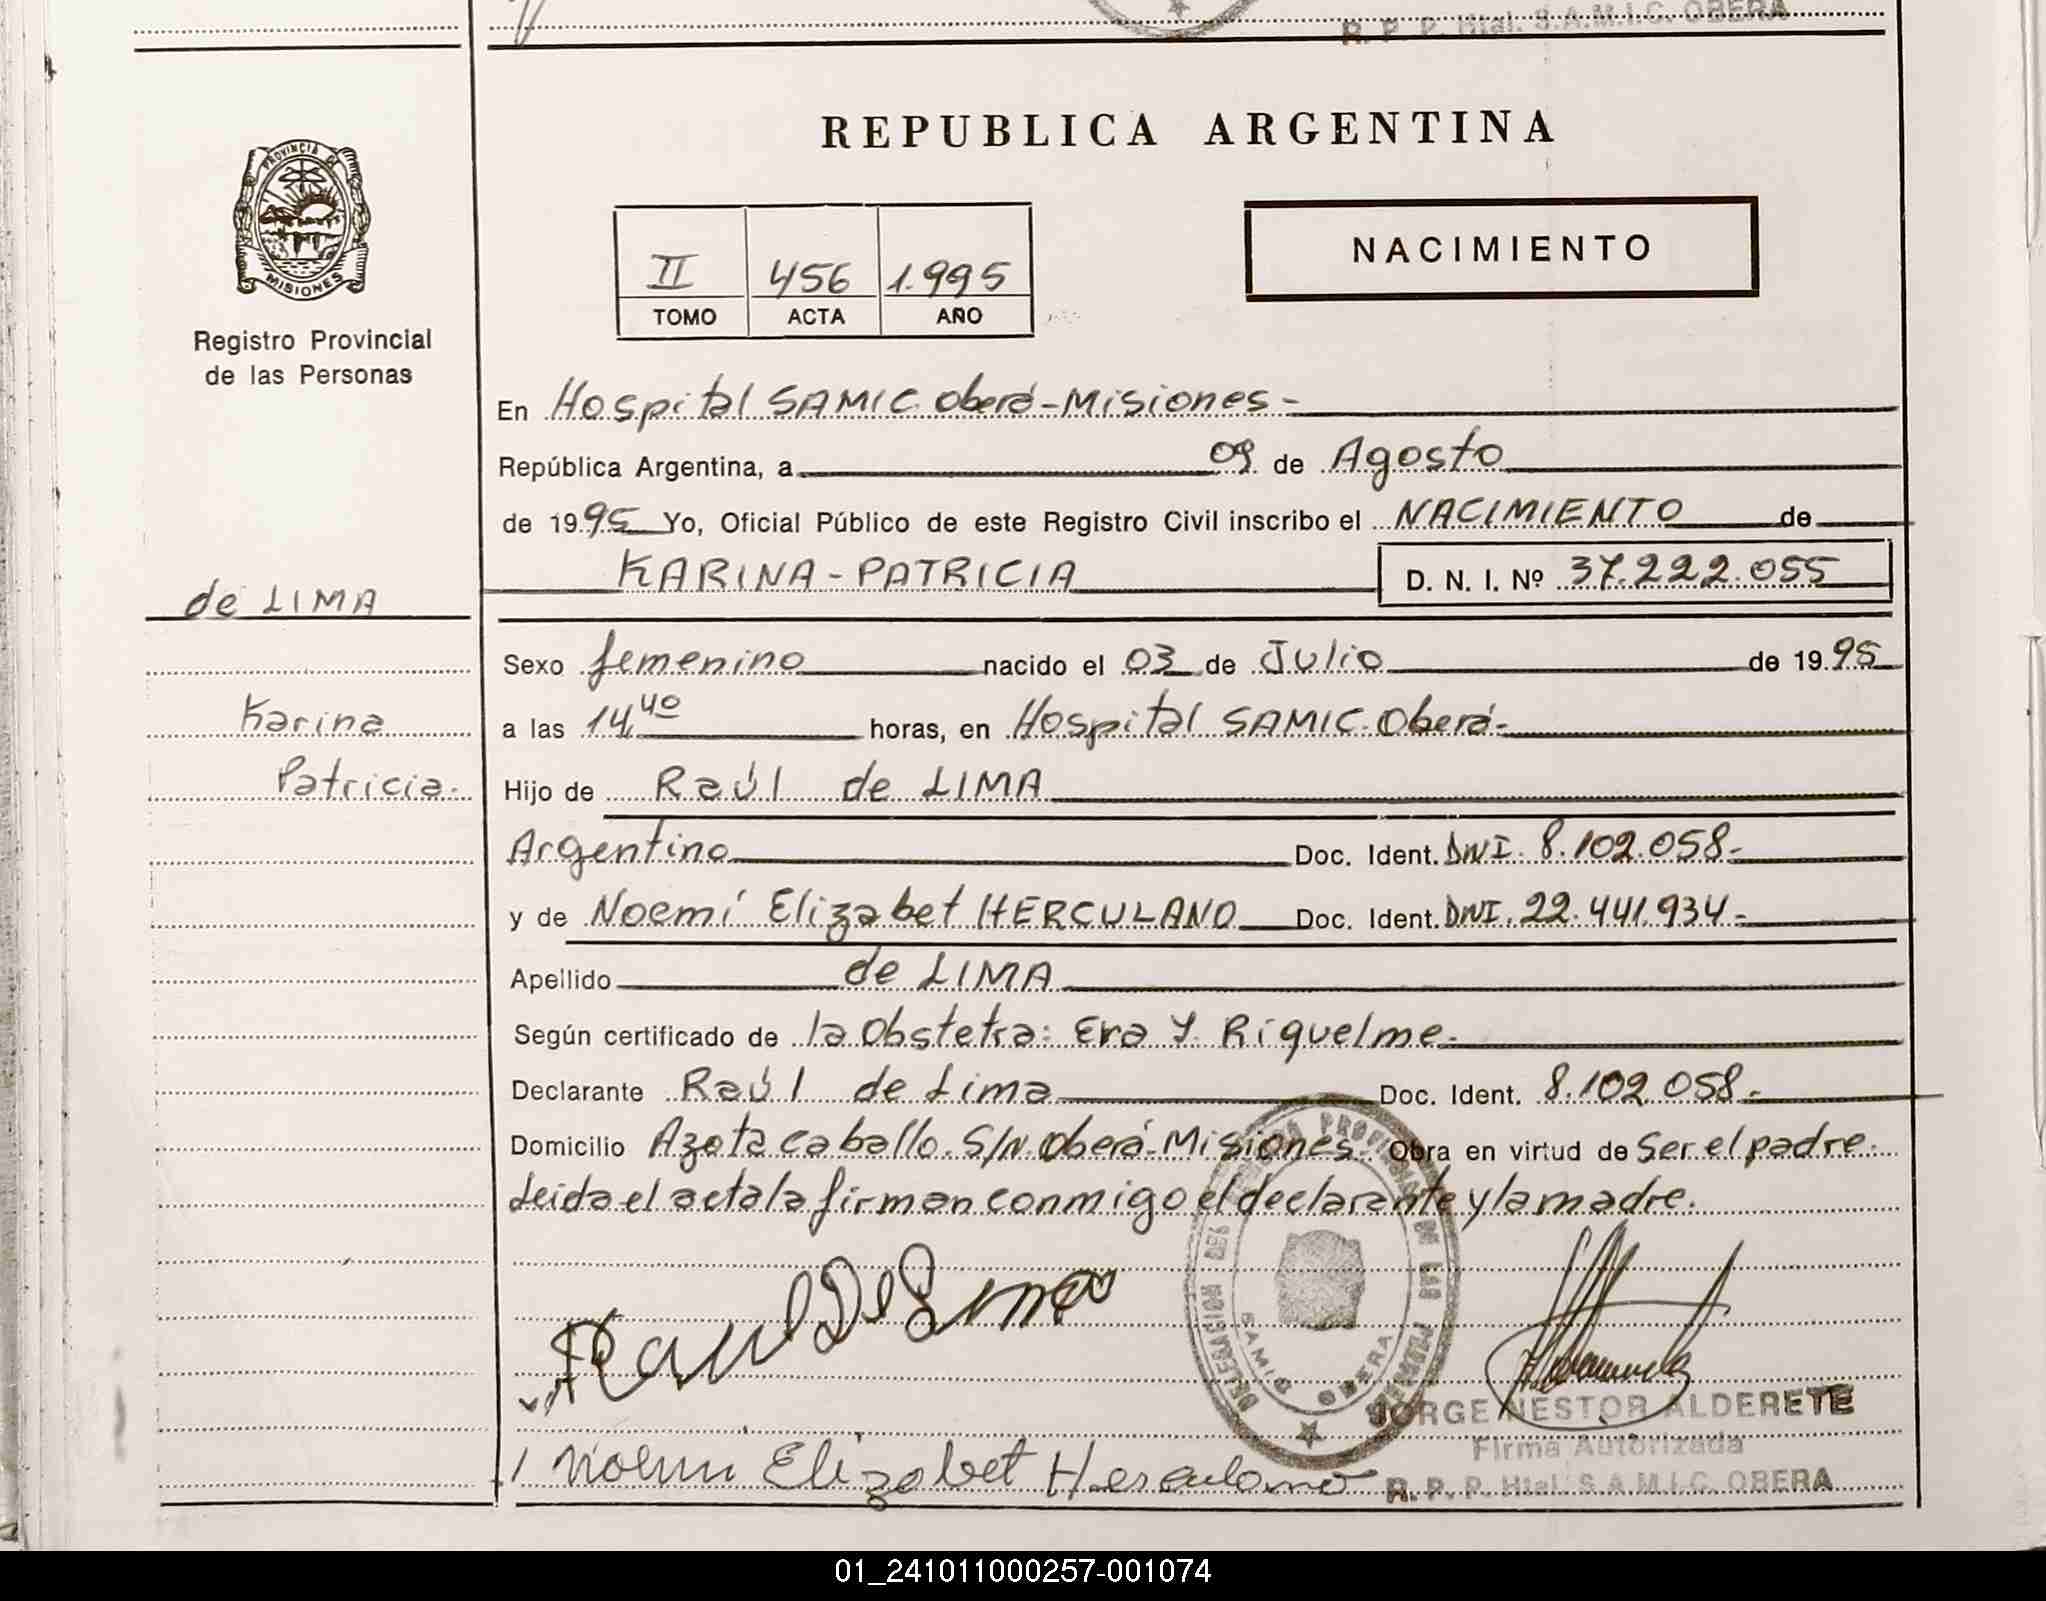 R. P. P. Htal. S.A.M.I.C. OBERA
PROVINCIA DE
MISIONES
Registro Provincial
de las Personas
REPUBLICA ARGENTINA
II 456 1.995
TOMO ACTA AÑO
NACIMIENTO
En Hospital SAMIC. Oberá-Misiones-
República Argentina, a 09 de Agosto
de 1995 Yo, Oficial Público de este Registro Civil inscribo el NACIMIENTO de
KARINA-PATRICIA D. N. I. Nº 37.222.055
de LIMA
Karina
Patricia.
Sexo femenino nacido el 03 de Julio de 1995
a las 14,40 horas, en Hospital SAMIC. Oberá-
Hijo de Raúl de LIMA
Argentino Doc. Ident. DNI. 8.102.058-
y de Noemí Elizabet HERCULANO Doc. Ident. DNI. 22.441.934-
Apellido de LIMA
Según certificado de la Obstetra: Era Y. Riquelme-
Declarante Raúl de Lima Doc. Ident. 8.102.058-
Domicilio Azota caballo. S/N. Oberá-Misiones- Obra en virtud de Ser el padre.
Leida el acta la firman conmigo el declarante y la madre.
DELEGACION DEL REGISTRO PROVINCIAL DE LAS PERSONAS
SAMIC OBERA
Raul De Lima
JORGE NESTOR ALDERETE
Firma Autorizada
R. P. P. Htal. S.A.M.I.C. OBERA
Noemi Elizabet Herculano
01_241011000257-001074